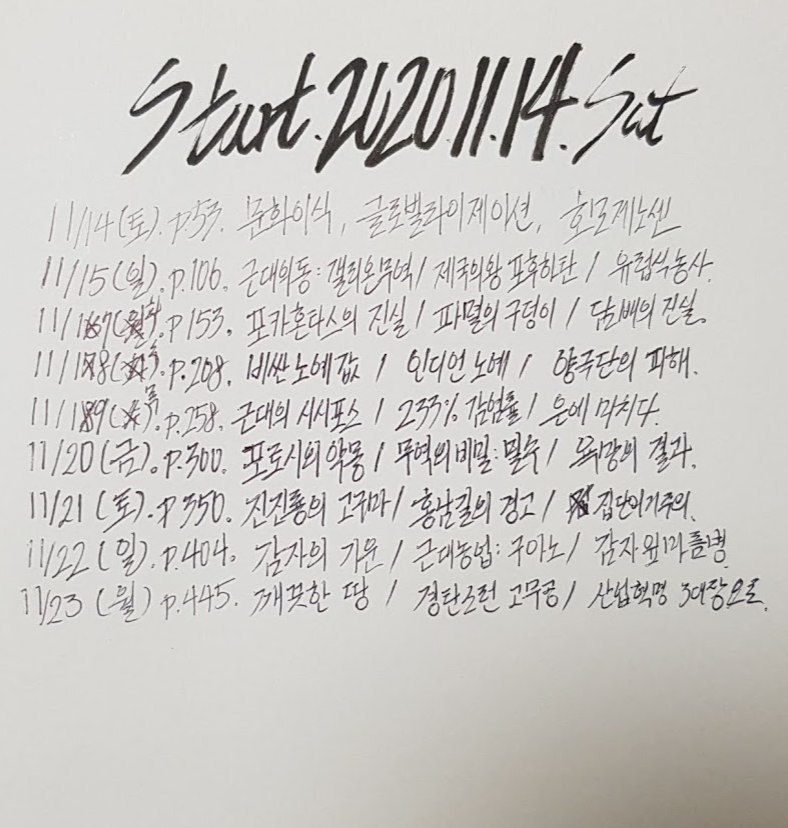 Start. 2020.11.14. Sat
11/14(토). p.53. 문화이식, 글로벌라이제이션, 호모제노센
11/15(일). p.106. 근대의동: 갤리온무역/ 제국의왕 포후하탄 / 유럽식농사.
11/17(화). p153. 포카혼타스의 진실 / 파멸의 구덩이 / 담배의 진실.
11/18(수). p.208. 비싼 노예값 / 인디언 노예 / 양극단의 피해.
11/19(목). p.258. 근대의 시시포스 / 233% 감염률 / 은에 미치다.
11/20(금). p.300. 포토시의 악몽 / 무역의 비밀: 밀수 / 욕망의 결과.
11/21(토). p350. 진진룡의 고구마/ 홍남길의 경고 / 집단이기주의.
11/22(일). p.404. 감자의 기운 / 근대농업: 구아노 / 감자잎마름병.
11/23(월) p.445. 깨끗한 땅 / 경탄스런 고무공/ 산업혁명 3대장요소.